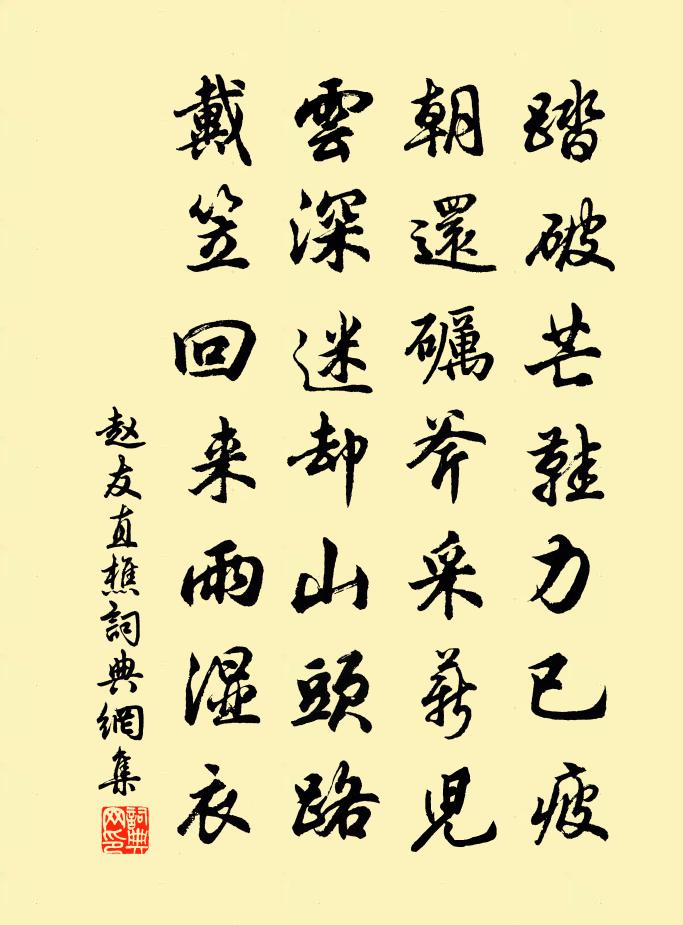 踏破芒鞋力已疲
朝還礪斧采薪兒
雲深迷却山頭路
戴笠回来雨湿衣
赵友直樵詞典網集
詞典網印